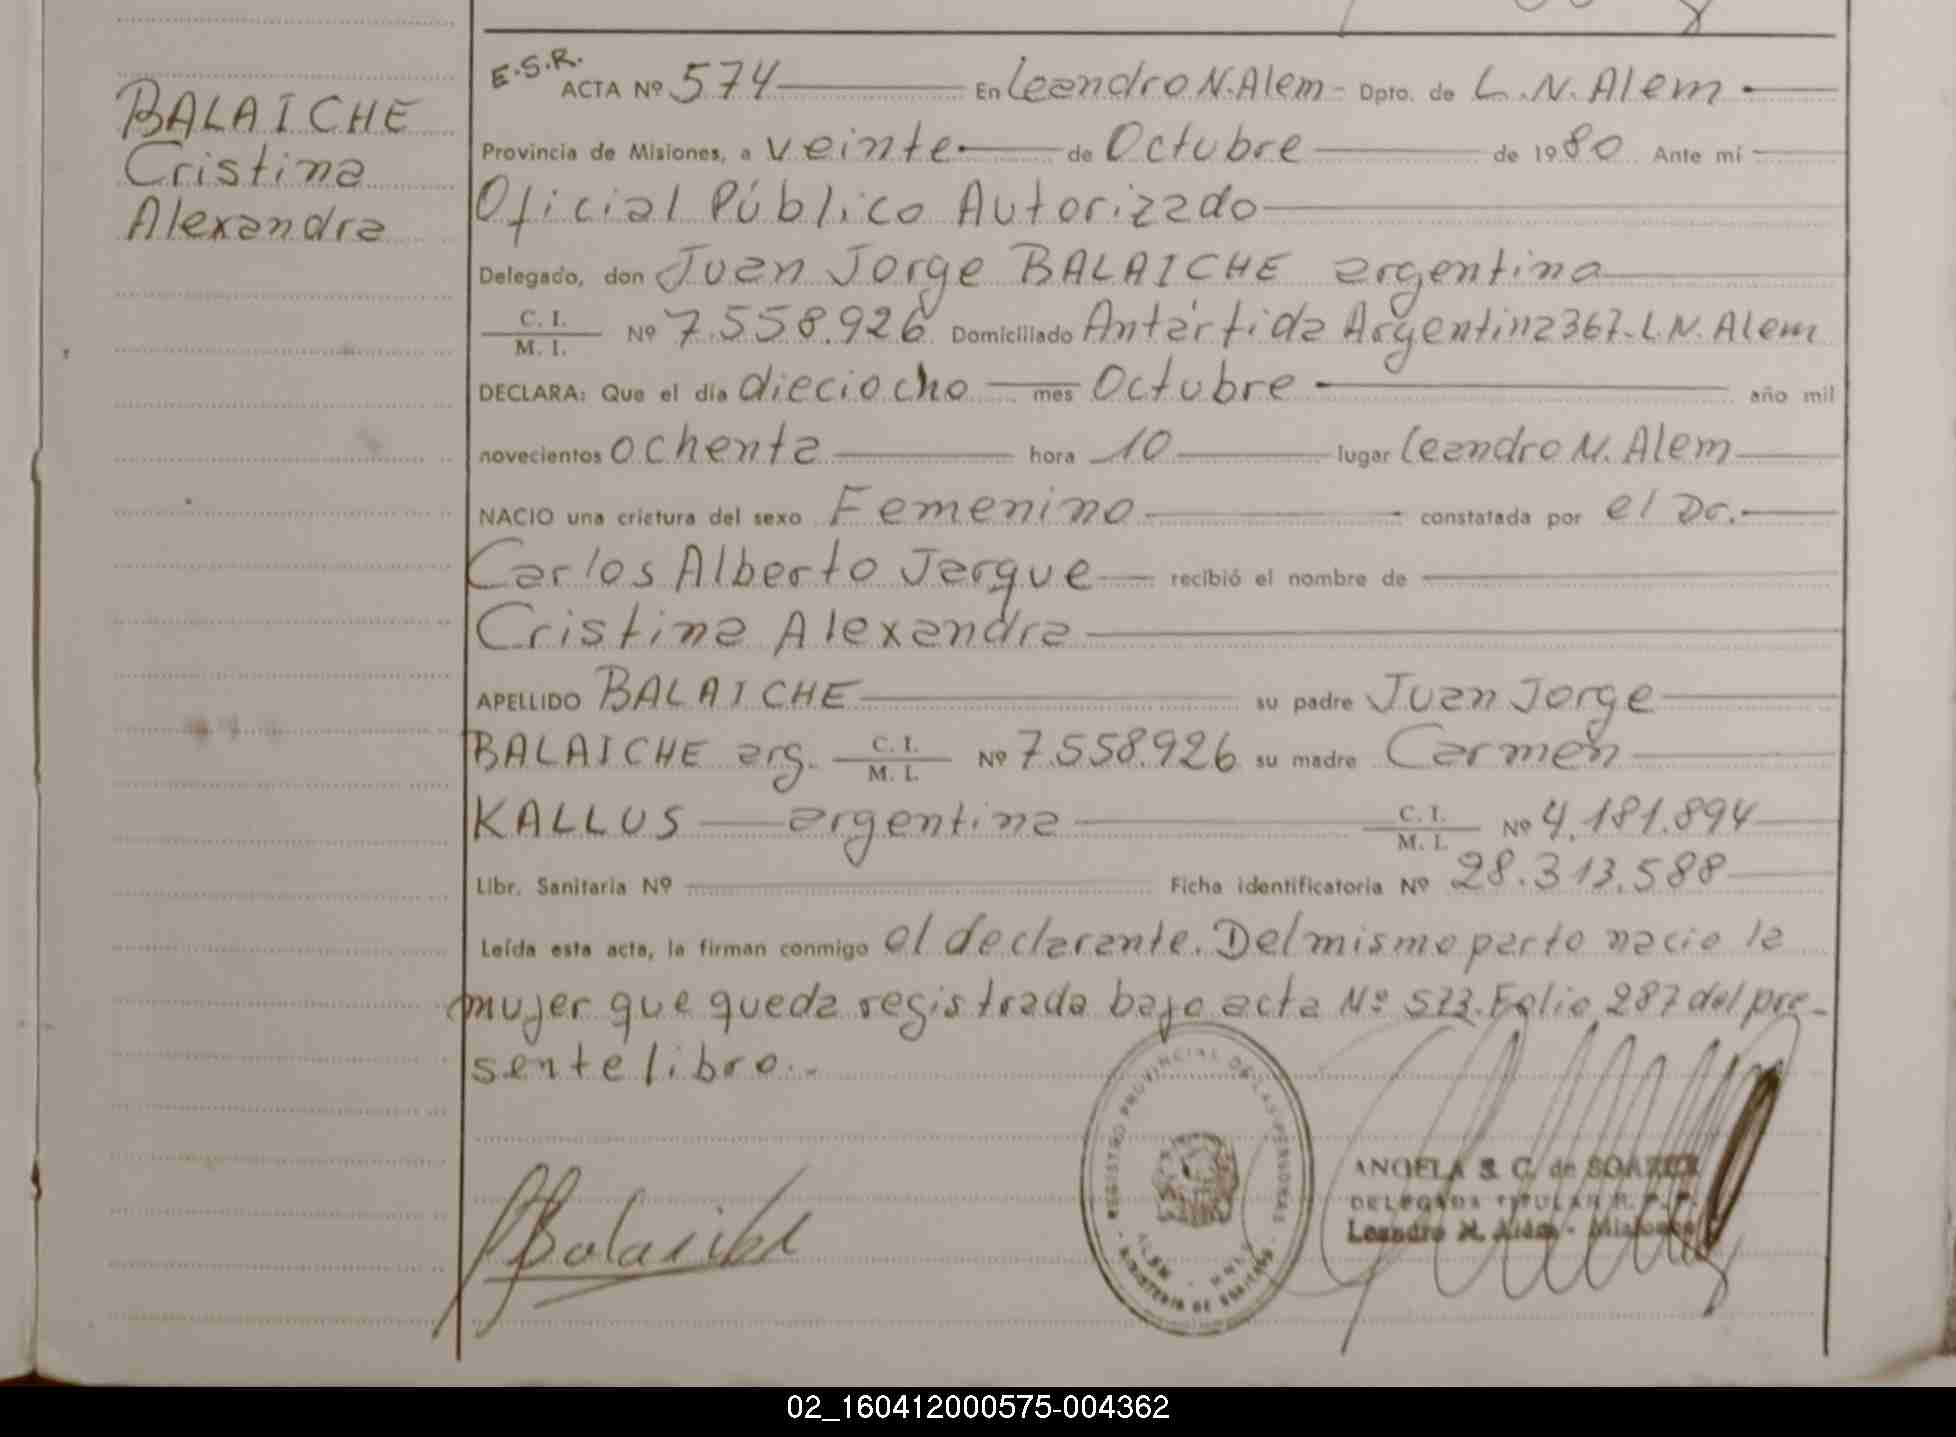 BALAICHE
Cristina
Alexandra
E.S.R.
ACTA Nº 574 En Leandro N. Alem - Dpto. de L. N. Alem
Provincia de Misiones, a veinte de Octubre de 1980 Ante mí
Oficial Público Autorizado
Delegado, don Juan Jorge BALAICHE argentino
C. I. / M. I. Nº 7.558.926 Domiciliado Antártida Argentina 367-L.N. Alem
DECLARA: Que el día dieciocho mes Octubre año mil
novecientos ochenta hora 10 lugar Leandro N. Alem
NACIO una crictura del sexo Femenino constatada por el Dr.
Carlos Alberto Jarque recibió el nombre de
Cristina Alexandra
APELLIDO BALAICHE su padre Juan Jorge
BALAICHE arg. C. I. / M. I. Nº 7.558.926 su madre Carmen
KALLUS argentina C. I. / M. I. Nº 4.181.894
Libr. Sanitaria Nº Ficha identificatoria Nº 28.313.588
Leída esta acta, la firman conmigo el declarante. Del mismo parto nacio la
mujer que queda registrada bajo acta Nº 573. Folio 287 del pre-
sente libro.-
REGISTRO PROVINCIAL DE LAS PERSONAS
ALEM - MNES
MINISTERIO DE
ANGELA S. C. de
DELEGADA TITULAR R. P. P.
Leandro N. Alem - Misiones
02_160412000575-004362